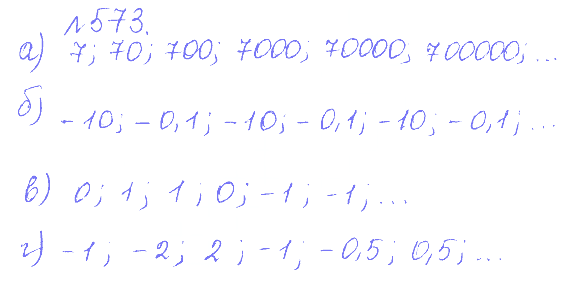 №573.
а) 7; 70; 700; 7000; 70000; 700000; ...
б) -10; -0,1; -10; -0,1; -10; -0,1; ...
в) 0; 1; 1; 0; -1; -1; ...
г) -1; -2; 2; -1; -0,5; 0,5; ...